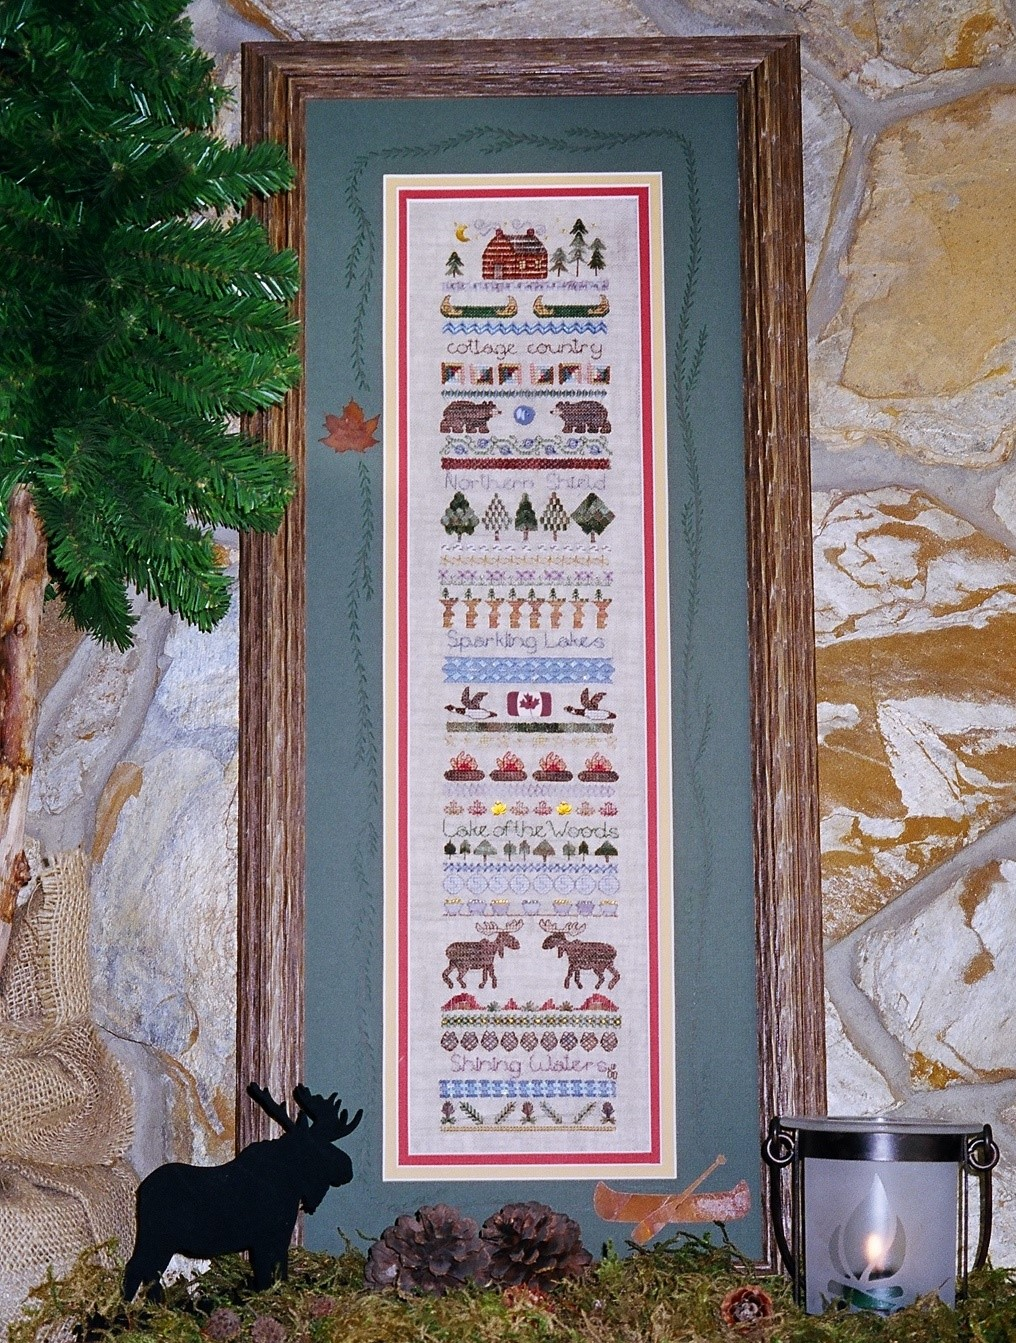 cottage country
Northern Shield
Sparkling Lakes
Lake of the Woods
Shining Waters